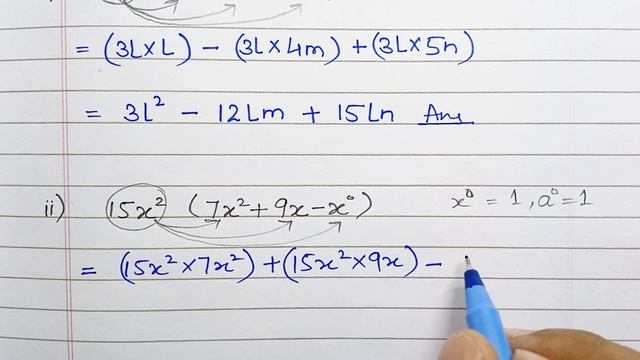 = (3L×L) − (3L×4m) + (3L×5n)
= 3L² − 12Lm + 15Ln Ans
ii) 15x² (7x² + 9x − x⁰) x⁰ = 1, a⁰ = 1
= (15x² × 7x²) + (15x² × 9x) −